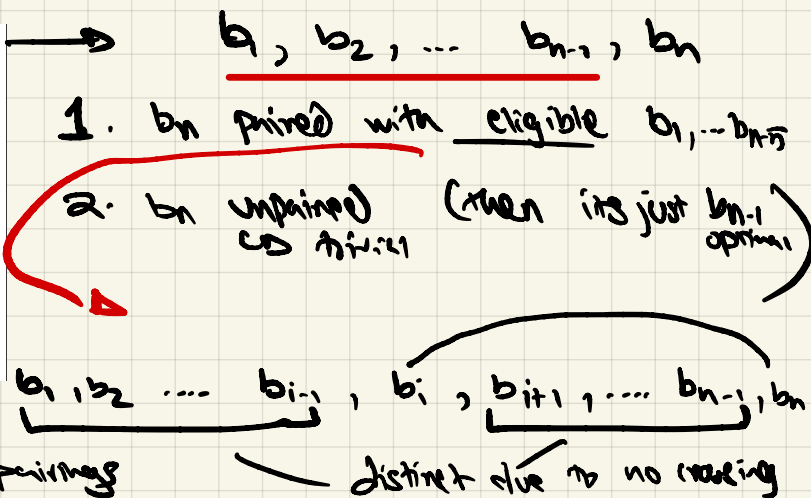 b1, b2, .... bn-1, bn
1. bn paired with eligible b1,...bn-5
2. bn unpaired (then its just bn-1 optimal)
↳ trivial
b1, b2 .... bi-1, bi, bi+1, .... bn-1, bn
pairings distinct due to no crossing